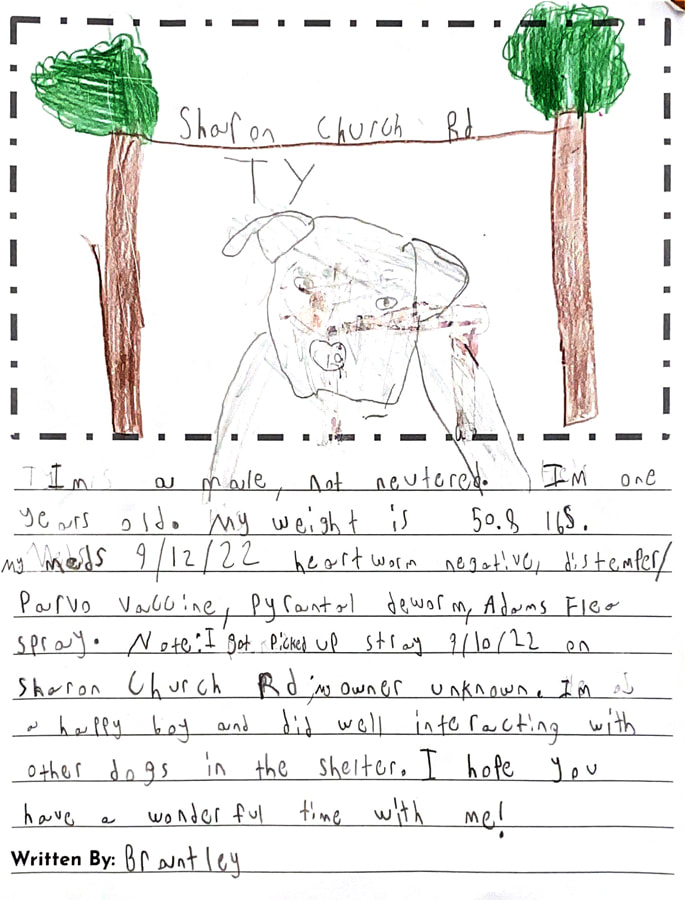 Sharon Church Rd
TY
Im a male, not neutered. IM one
years old. My weight is 50.8 lbs.
my Meds 9/12/22 heartworm negative, distemper/
Parvo vaccine, Pyrantal deworm, Adams Flea
spray. Note: I got Picked up stray 9/10/22 on
Sharon Church Rd; owner unknown. Im
a happy boy and did well interacting with
other dogs in the shelter. I hope you
have a wonderful time with me!
Written By: Brantley